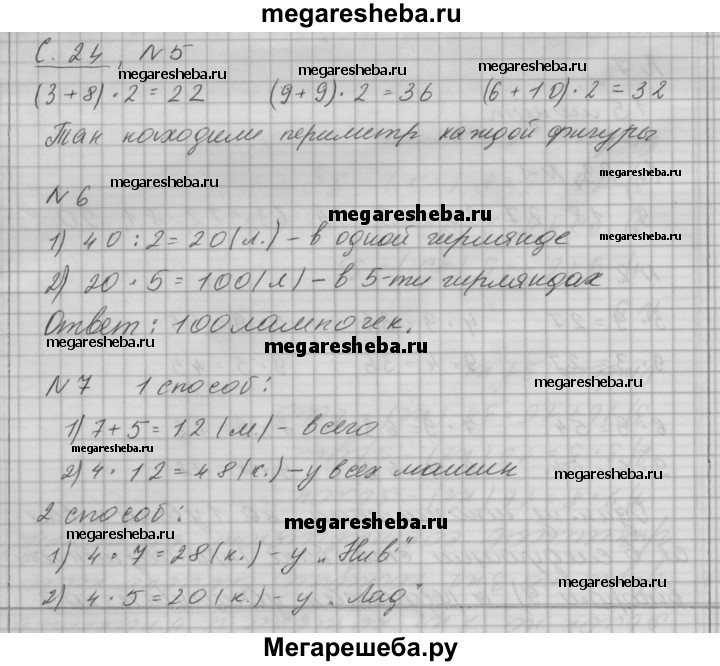 megaresheba.ru
С. 24, N 5
megaresheba.ru megaresheba.ru megaresheba.ru
(3+8)·2=22 (9+9)·2=36 (6+10)·2=32
Так находили периметр каждой фигуры
megaresheba.ru megaresheba.ru
N 6
megaresheba.ru
1) 40:2=20(л.) – в одной гирлянде
megaresheba.ru
2) 20·5=100(л) – в 5-ти гирляндах
Ответ: 100 лампочек.
megaresheba.ru
N 7 1 способ:
megaresheba.ru
1) 7+5=12(м.) – всего
megaresheba.ru
2) 4·12=48(к.) – у всех машин
megaresheba.ru
2 способ:
megaresheba.ru
megaresheba.ru
1) 4·7=28(к.) – у „Нив"
megaresheba.ru
2) 4·5=20(к.) – у „Лад"
Мегарешеба.ру